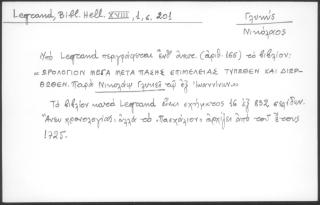 Legrand, Bibl. Hell. XVIII, 1, σ. 201
Γλυκύς
Νικόλαος
Ὑπὸ Legrand περιγράφεται ἐνθ' ἀνωτ. (ἀριθ. 166) τὸ βιβλίον:
« ΩΡΟΛΟΓΙΟΝ ΜΕΓΑ ΜΕΤΑ ΠΑΣΗΣ ΕΠΙΜΕΛΕΙΑΣ ΤΥΠΩΘΕΝ ΚΑΙ ΔΙΟΡ-
ΘΩΘΕΝ. Παρὰ Νικολάῳ Γλυκεῖ τῷ ἐξ Ἰωαννίνων».
Τὸ βιβλίον κατὰ Legrand εἶναι σχήματος 16 ἐξ 832 σελίδων.
Ἄνευ χρονολογίας, ἀλλὰ τὸ Πασχάλιον ἀρχίζει ἀπὸ τοῦ ἔτους
1725.